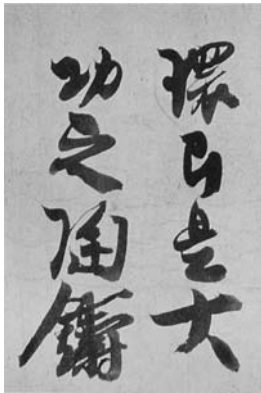 環是大
功之陶鑄